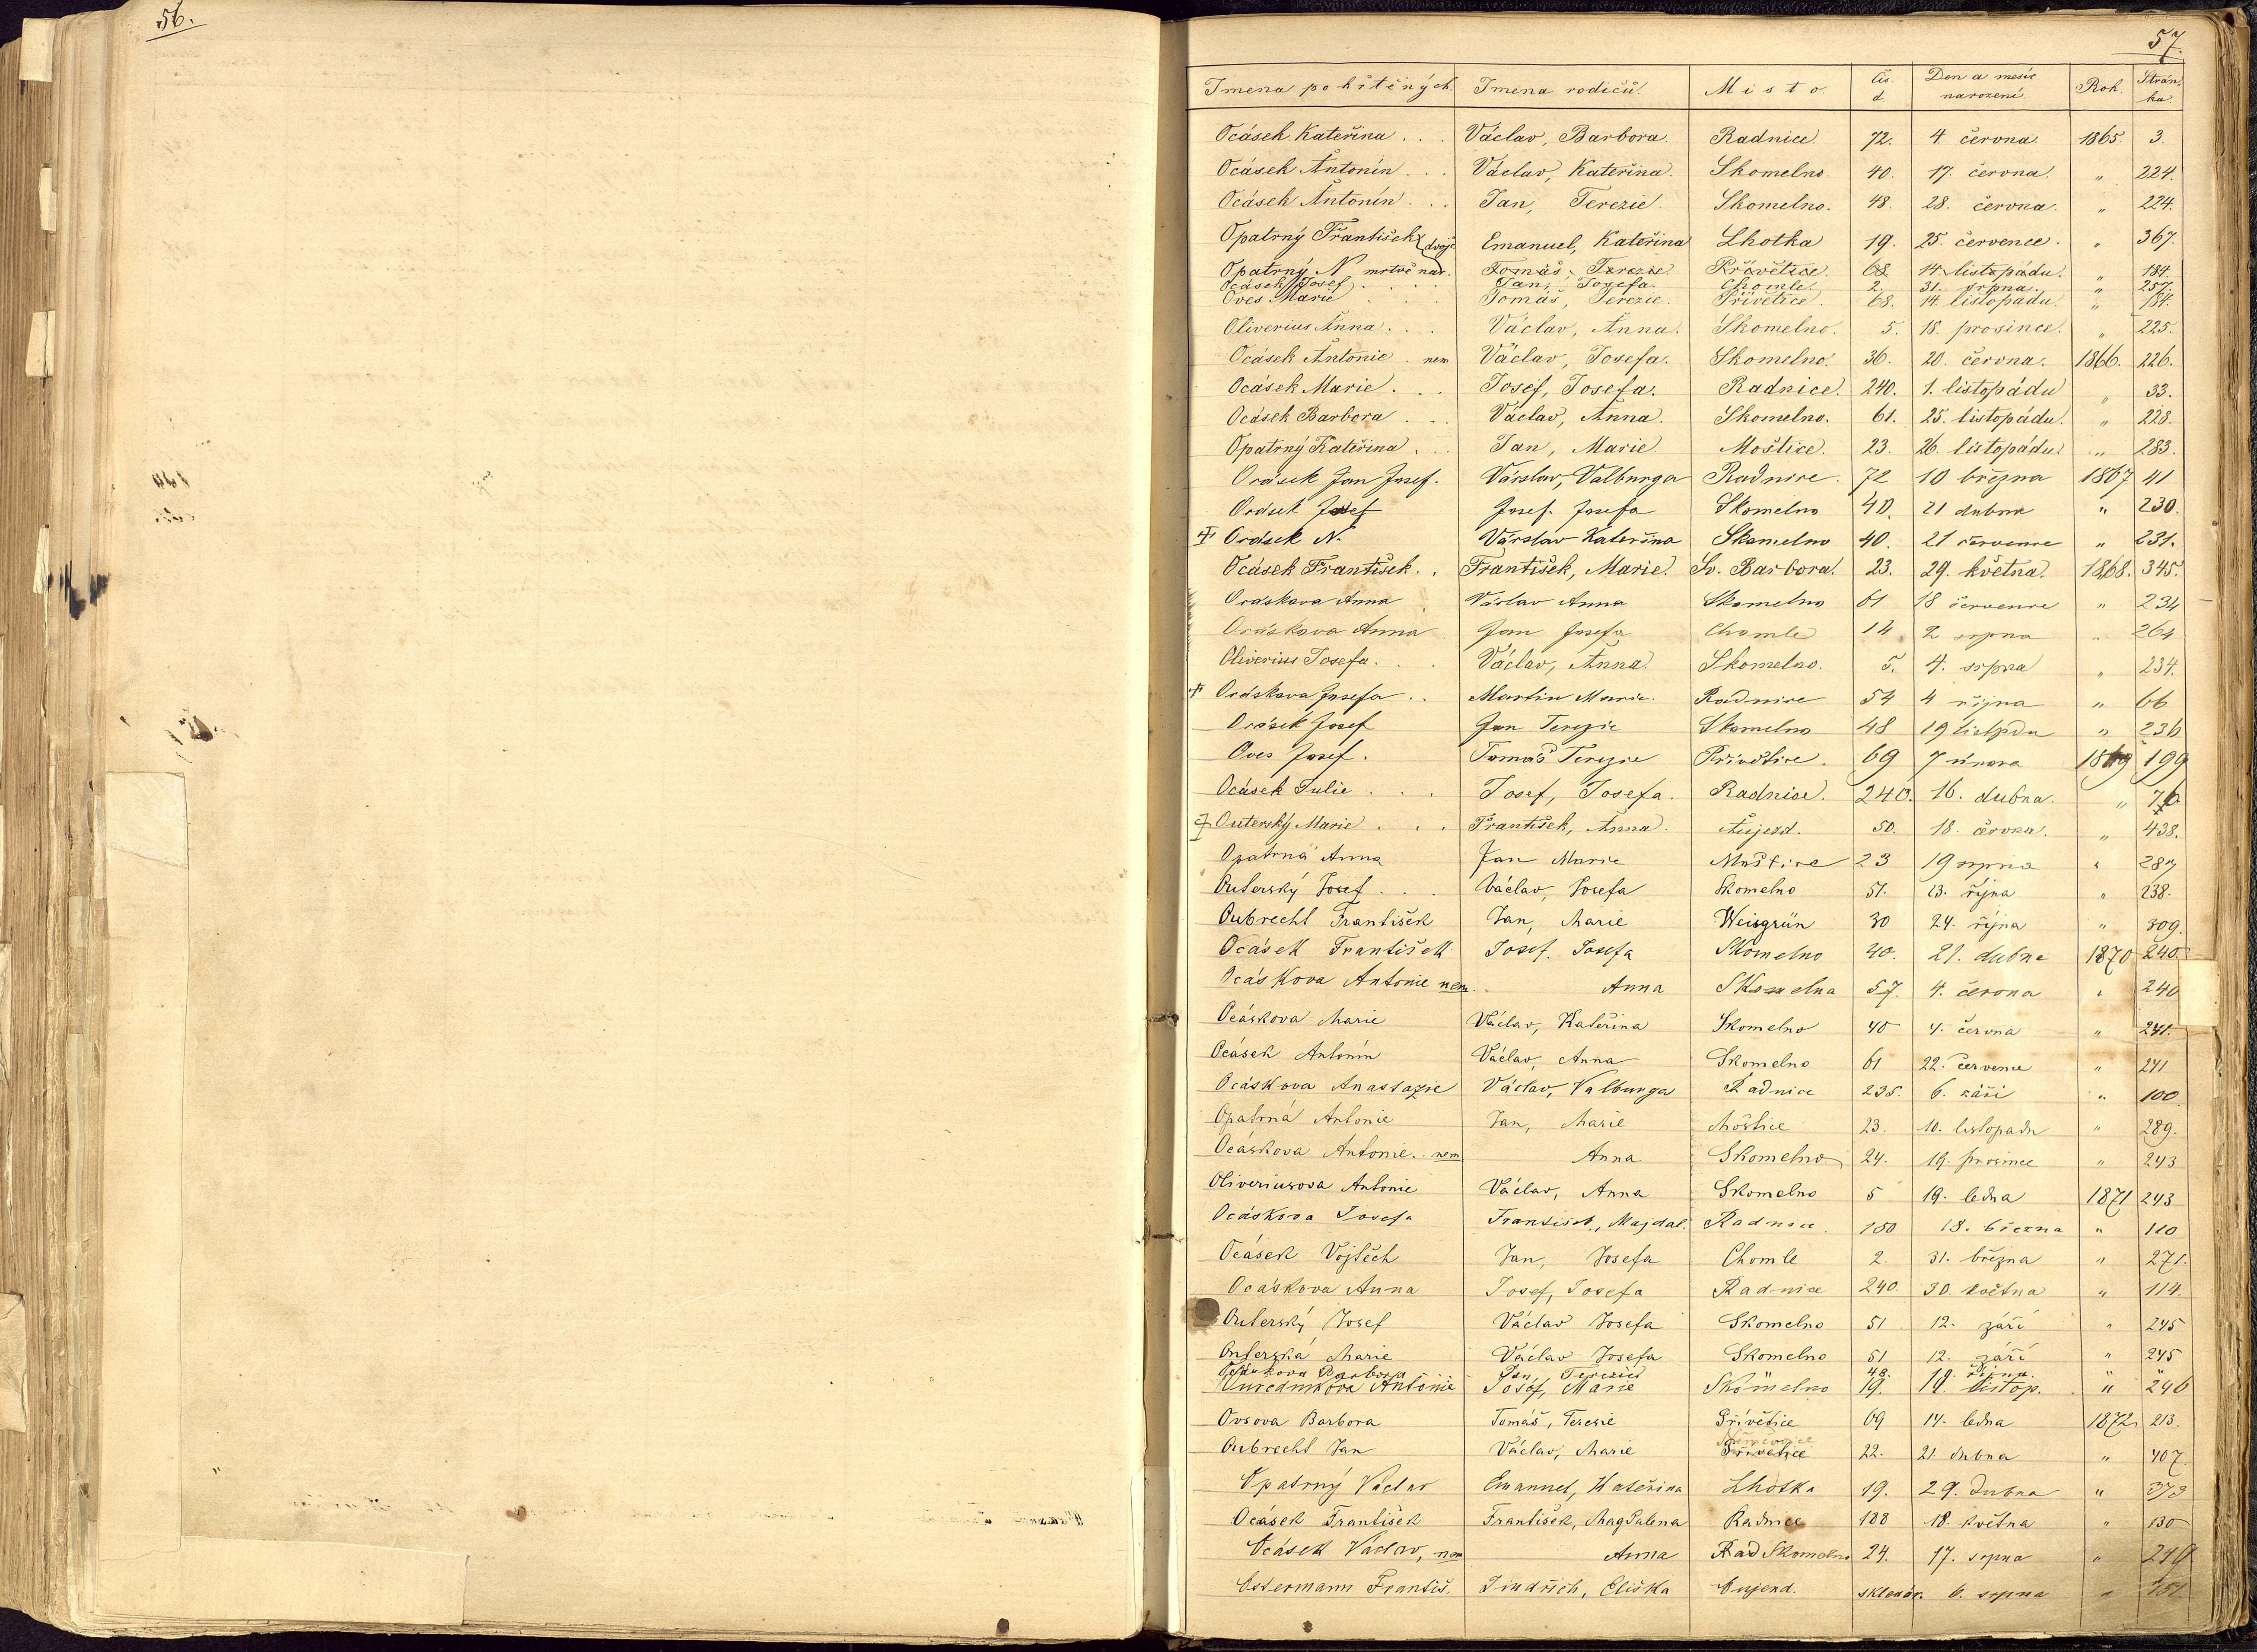 56.
57.
Jmena pokřtěných. Jmena rodičů. Misto. Čís. d. Den a mesíc narození. Rok. Stránka.
Ocásek Kateřina . . . Václav, Barbora. Radnice. 72. 4. června. 1865. 3.
Ocásek Antonín . . . Václav, Kateřina. Skomelno. 40. 17. června. " 224.
Ocásek Antonín . . . Jan, Terezie. Skomelno. 48. 28. června. " 224.
Opatrný František dvojč Emanuel, Kateřina Lhotka 19. 25. července. " 367.
Opatrný N mrtvě nar. Tomáš, Terezie. Přívětice. 68. 14. listopádu. " 184.
Ocásek Josef . . . . Jan, Josefa. Chomle. 2. 31. srpna. " 257.
Oves Marie . . . Tomáš, Terezie. Přívětice. 68. 14. listopádu. " 184.
Oliverius Anna . . . Václav, Anna. Skomelno. 5. 18. prosince. " 225.
Ocásek Antonie . nem Václav, Josefa. Skomelno. 36. 20. června. 1866. 226.
Ocásek Marie . . . Josef, Josefa. Radnice. 240. 1. listopádu " 33.
Ocásek Barbora . . . Václav, Anna. Skomelno. 61. 25. listopádu. " 228.
Opatrný Kateřina . . . Jan, Marie. Moštice. 23. 26. listopádu " 283.
Ocásek Jan Josef. Václav, Valburga Radnice. 72 10 března 1867 41
Ocásek Josef Josef. Josefa Skomelno 40. 21 dubna " 230.
Ocásek N. Václav Kateřina Skomelno 40. 21 července " 231.
Ocásek František . . František, Marie. Sv. Barbora. 23. 29. května. 1868. 345.
Ocáskova Anna Václav Anna Skomelno 61 18 července " 234
Ocáskova Anna Jan Josefa Chomle 14 2 srpna " 264
Oliverius Josefa . . . Václav, Anna. Skomelno. 5. 4. srpna " 234.
Ocáskova Josefa . . Martin Marie. Radnice 54 4 října " 66
Ocásek Josef Jan Terezie Skomelno 48 19 listpdu " 236
Oves Josef. Tomáš Terezie Přívětice. 69 7 února 1869 199
Ocásek Julie . . . Josef, Josefa. Radnice. 240. 16. dubna. " 76
Outerský Marie . . . František, Anna. Aujezd. 50. 18. června. " 438.
Opatrná Anna Jan Marie Moštice 23 19 srpna " 287
Outerský Josef . . . Václav, Josefa Skomelno 51. 23. října " 238.
Oubrecht František Jan, Marie Weisgrün 30 24. října " 309.
Ocásek František Josef. Josefa Skomelno 40. 21. dubna 1870 240.
Ocáskova Antonie nem. Anna Skomelna 57. 4. června " 240
Ocáskova Marie Václav, Kateřina Skomelno 40 4. června " 241.
Ocásek Antonín Václav, Anna Skomelno 61 22. července " 241
Ocáskova Anastazie Václav, Valburga Radnice 235. 6. září " 100
Opatrná Antonie Jan, Marie Moštice 23. 10. listopadu " 289.
Ocáskova Antonie . nem Anna Skomelno 24. 19. prosince " 243
Oliveriusova Antonie Václav, Anna Skomelno 5 19. ledna 1871 243
Ocáskova Josefa František, Majdal. Radnice 180 18. března " 110
Ocásek Vojtěch Jan, Josefa Chomle 2. 31. března " 271.
Ocáskova Anna Josef, Josefa Radnice 240. 30. května " 114
Outerský Josef Václav Josefa Skomelno 51 12. září " 245
Outerská Marie Václav Josefa Skomelno 51 12. září " 245
Ocáskova Barbora Jan, Terezie " 48. 19. října. " "
Ouředníkova Antonie Josef, Marie Skomelno 19. 19. listop. " 246
Ovsova Barbora Tomáš, Terezie Přívětice 69 14. ledna 1872 213.
Oubrecht Jan Václav, Marie Přívětice Němčovice 22. 21. dubna " 407.
Opatrný Václav Emanuel, Kateřina Lhotka 19. 29. Dubna " 373
Ocásek František František, Magdalena Radnice 188 18. května " 130
Ocásek Václav, nem Anna Rad Skomelno 24. 17. srpna " 249
Ostermann Františ. Jindřich, Eliška Oujezd. sklenár. 6. srpna " 451